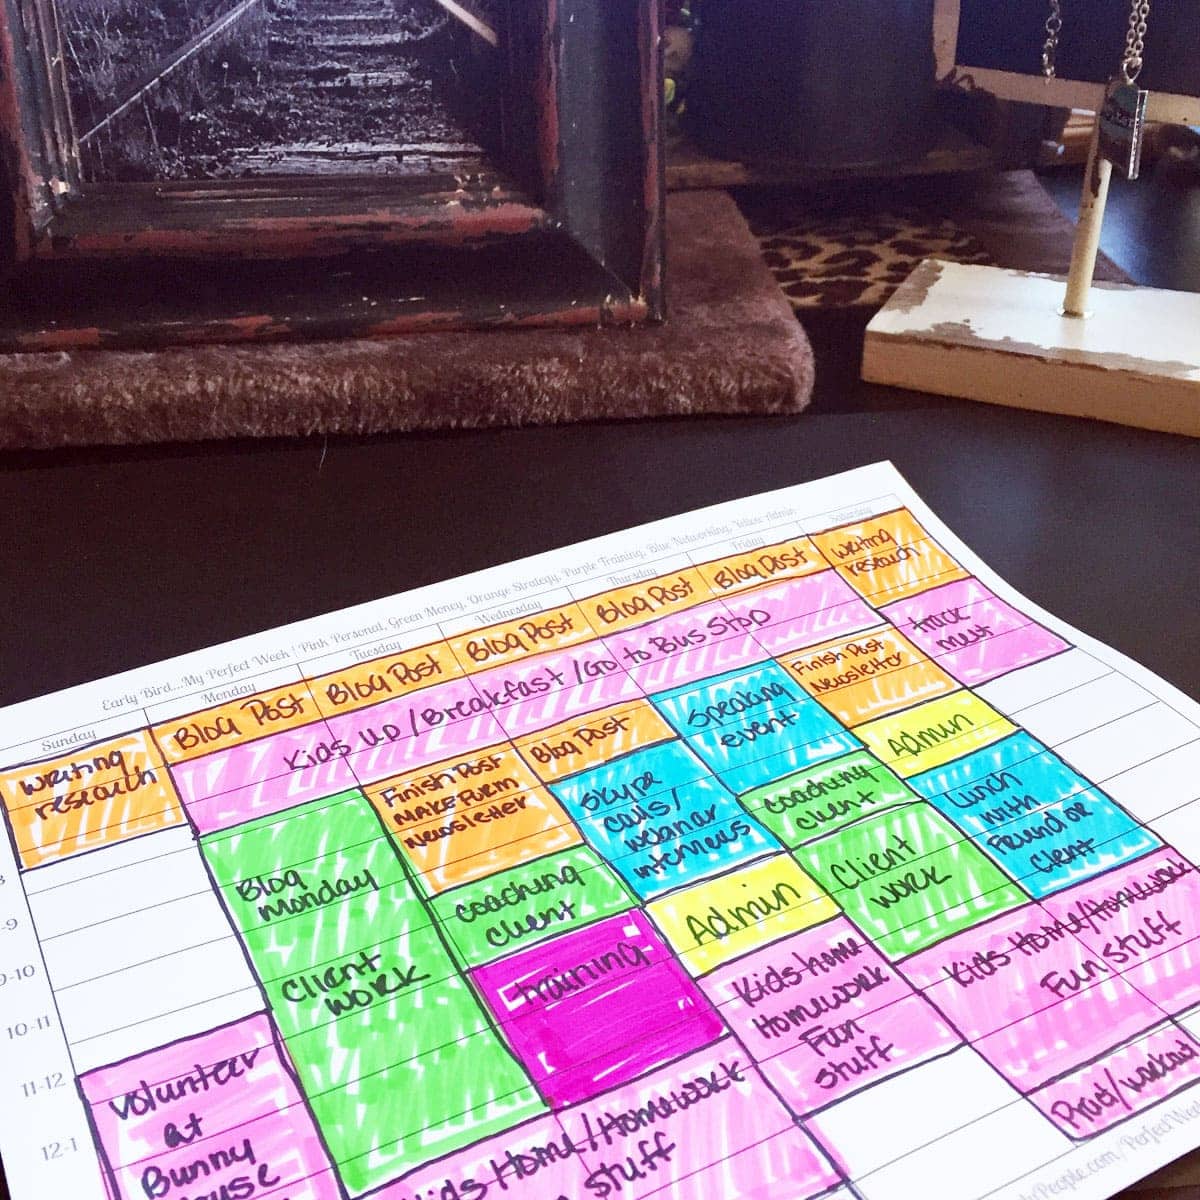 Early Bird...My Perfect Week! Pink Personal, Green Money, Orange Strategy, Purple Training, Blue Networking, Yellow Admin
Sunday
Monday
Tuesday
Wednesday
Thursday
Friday
Saturday
Writing
research
Blog Post
Blog Post
Blog Post
Blog Post
Blog Post
Writing
research
Kids up / Breakfast / Go to Bus Stop
track
meet
Blog
Monday
Client
work
Finish Post
Newsletter
coaching
client
training
Blog Post
Skype
calls/
webinar
interviews
Admin
Kids home
Homework
Fun
stuff
Speaking
event
coaching
client
Client
work
Finish Post
Newsletter
Admin
Lunch
with
Friend or
client
Kids Home/Homework
Fun stuff
Kids Home/Homework
stuff
9-10
10-11
11-12
12-1
Volunteer
at
Bunny